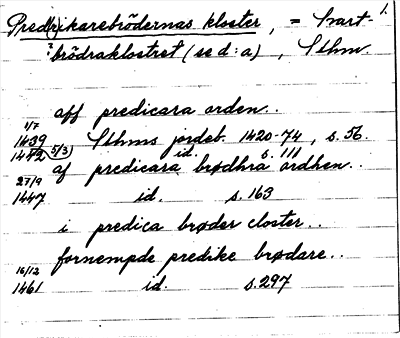 Pred(i)karebrödernas kloster, = Svart- 1.
brödraklostret (se d:a), Sthm.
aff predicara orden..
1/7
1439 Sthms jordeb. 1420-74, s. 56.
1442 5/3) id. s. 111
af predicara brødhra ordhen..
27/9
1447 id. s. 163
i predica brøder closter..
fornempde predike brødare..
16/12
1461 id. s. 297